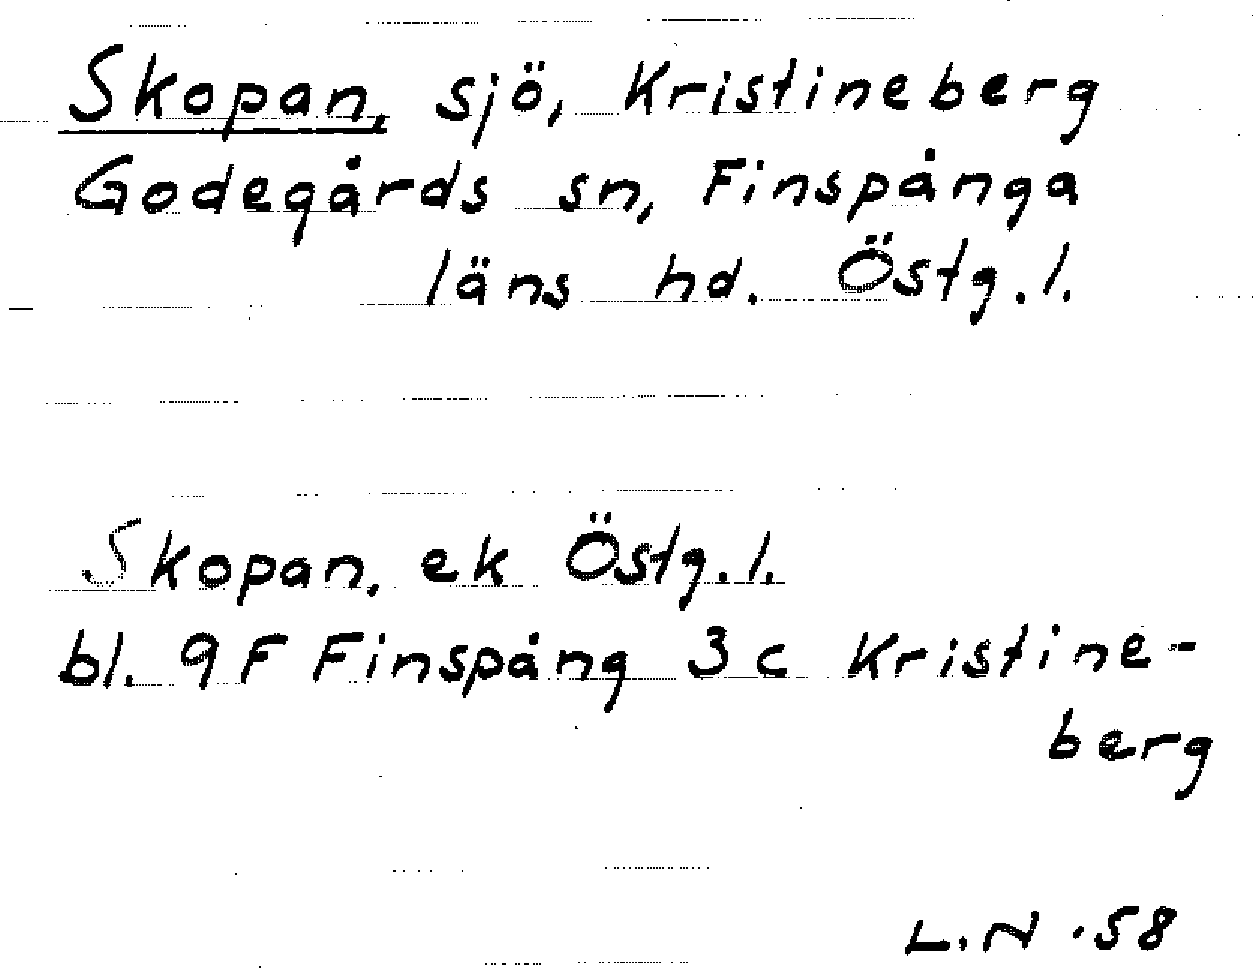 Skopan, sjö, Kristineberg
Godegårds sn, Finspånga
läns hd. Östg. l.
Skopan. ek Östg. l.
bl. 9F Finspång 3c Kristine-
berg
L.N. 58